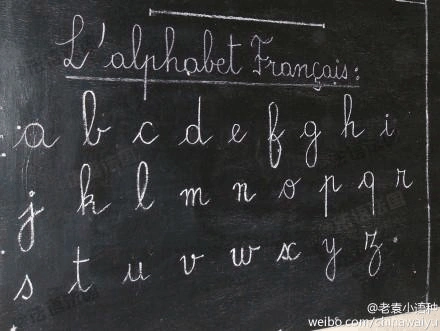 L'alphabet Français:
a b c d e f g h i
j k l m n o p q r
s t u v w x y z.
@老袁小语种
weibo.com/chinawaiyu